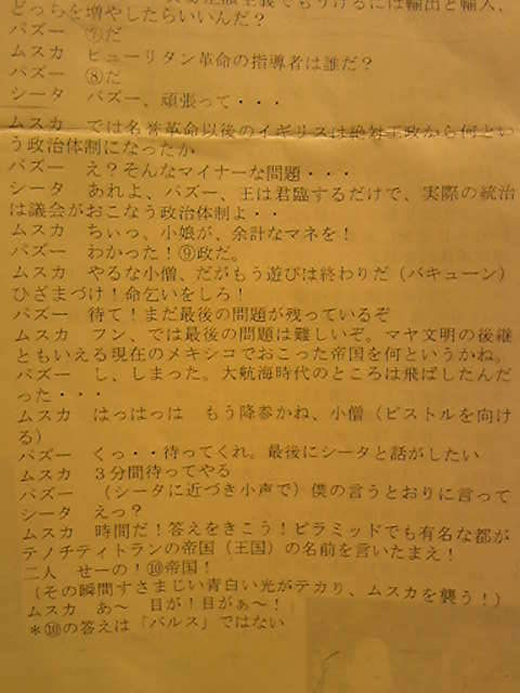 どっちを増やしたらいいんだ？
パズー　⑦だ
ムスカ　ピューリタン革命の指導者は誰だ？
パズー　⑧だ
シータ　パズー、頑張って・・・
ムスカ　では名誉革命以後のイギリスは絶対王政から何とい
う政治体制になったか
パズー　え？そんなマイナーな問題・・・
シータ　あれよ、パズー、王は君臨するだけで、実際の統治
は議会がおこなう政治体制よ・・
ムスカ　ちぃっ、小娘が、余計なマネを！
パズー　わかった！⑨政だ。
ムスカ　やるな小僧、だがもう遊びは終わりだ（バキューン）
ひざまづけ！命乞いをしろ！
パズー　待て！まだ最後の問題が残っているぞ
ムスカ　フン、では最後の問題は難しいぞ。マヤ文明の後継
ともいえる現在のメキシコでおこった帝国を何というかね。
パズー　し、しまった。大航海時代のところは飛ばしたんだ
った・・・
ムスカ　はっはっは　もう降参かね、小僧（ピストルを向け
る）
パズー　くっ・・待ってくれ。最後にシータと話がしたい
ムスカ　３分間待ってやる
パズー　（シータに近づき小声で）僕の言うとおりに言って
シータ　えっ？
ムスカ　時間だ！答えをきこう！ピラミッドでも有名な都が
テノチティトランの帝国（王国）の名前を言いたまえ！
二人　せーの！⑩帝国！
（その瞬間すさまじい青白い光がテカり、ムスカを襲う！）
ムスカ　あ～　目が！目がぁ～！
＊⑩の答えは「バルス」ではない